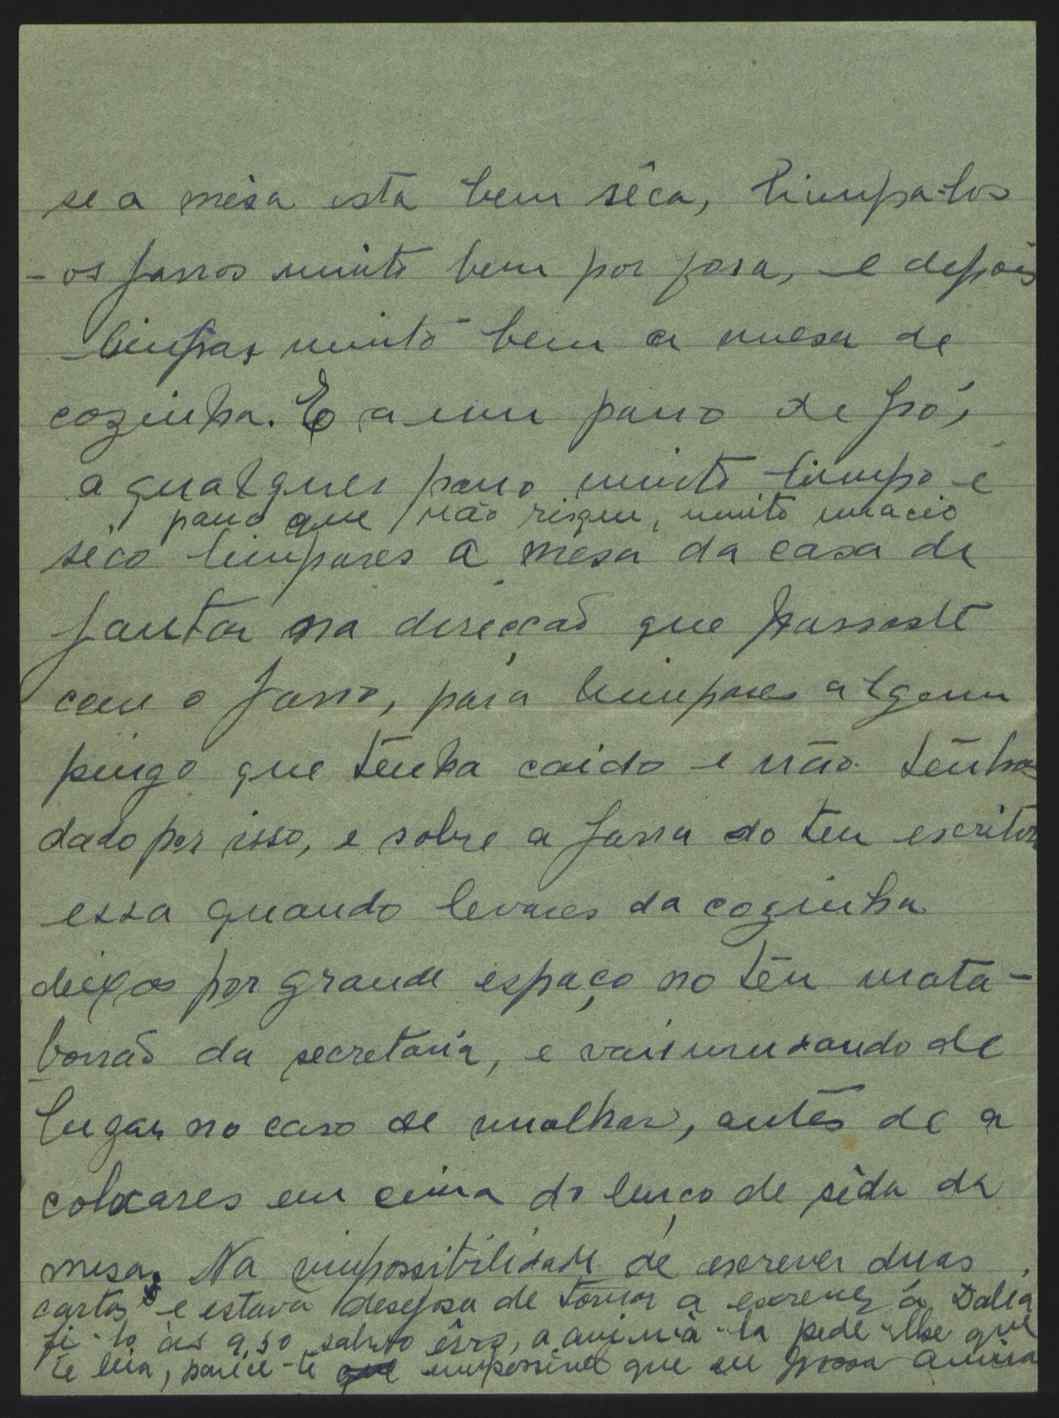 se a mêsa esta bem sêca, limpa-los
-os jarros muito bem por fora, e depois
limpas muito bem a mesa de
cozinha. E a um pano de pó,
a qualquer pano muito limpo e
pano que não risque, muito macio
sêco limpares a mêsa da casa de
jantar na direcção que passaste
com o jarro, para limpares algum
pingo que tênha caido e não tênhas
dado por isso, e sobre a jarra do teu escritor
essa quando levares da cozinha
deixas por grande espaço no têu mata-
borrão da secretária, e vais mudando de
lugar no caso de molhar, antes de a
colocares em cima do lenço de sêda da
mesa. Na impossibilidade de escrever duas
cartas e estava desejosa de tornar a escrever á Dalia
fi-lo ás 9,50 salvo êrro, a anima-la pede-lhe que
te leia, parece-te impossivel que eu possa